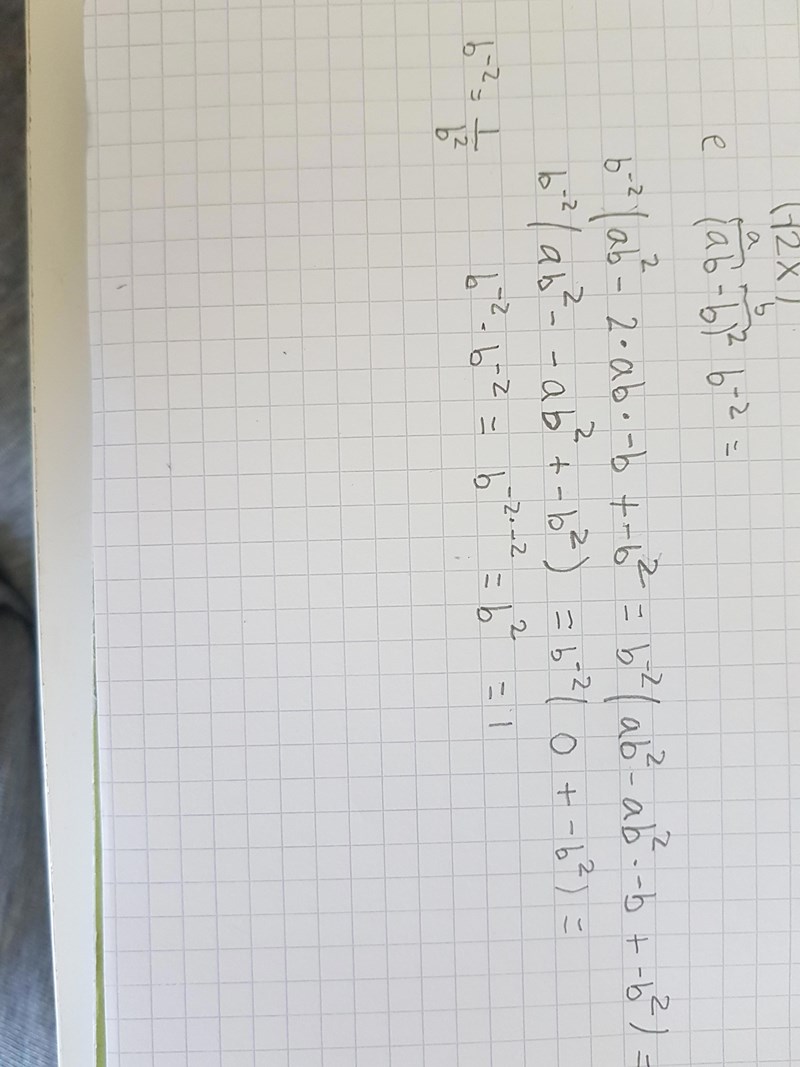 (12x)
e (ab - b)² b⁻² =
a b
b⁻²(ab² - 2·ab·-b + -b² = b⁻²(ab² - ab²·-b + -b²) =
b⁻²(ab² - -ab² + -b²) = b⁻²(0 + -b²) =
b⁻² = 1/b² b⁻²·b⁻² = b⁻²·⁻² = b² = 1